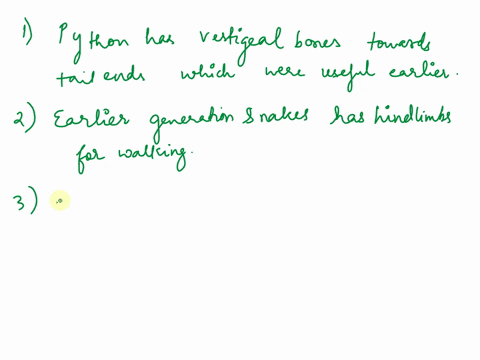 1) Python has vestigeal bones towards
tail ends which were useful earlier.
2) Earlier generation snakes has hindlimbs
for walking.
3)